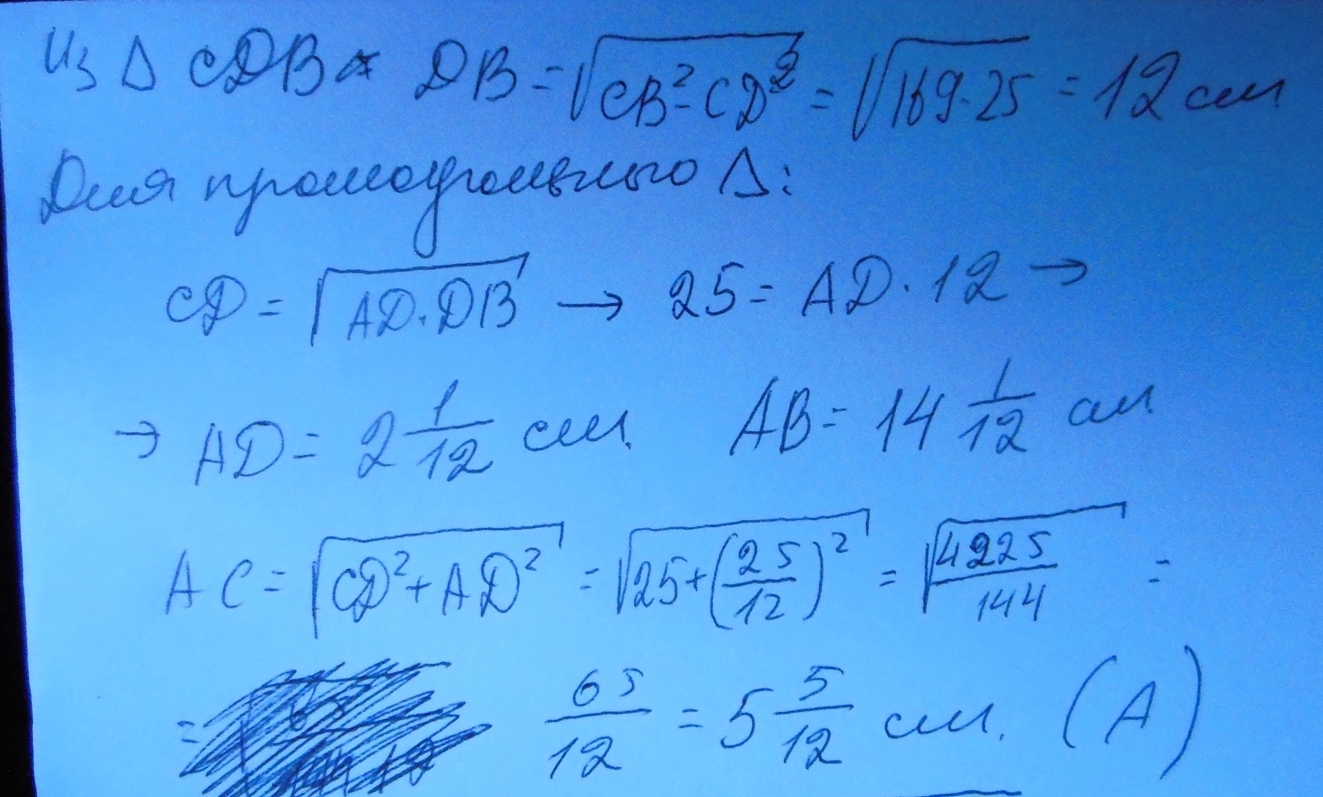 Из Δ CDB DB = √(CB² - CD²) = √(169-25) = 12 см
Для прямоугольного Δ:
CD = √(AD·DB) → 25 = AD · 12 →
→ AD = 2 1/12 см. AB = 14 1/12 см
AC = √(CD² + AD²) = √(25 + (25/12)²) = √(4225/144) =
= 65/12 = 5 5/12 см. (A)